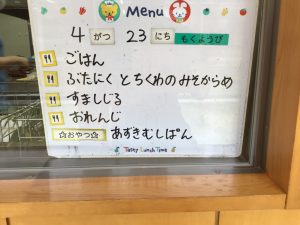 Menu
4 がつ 23 にち もくようび
ごはん
ぶたにく とちくわの みそからめ
すましじる
おれんじ
☆おやつ☆ あずきむしぱん
Tasty Lunch Time